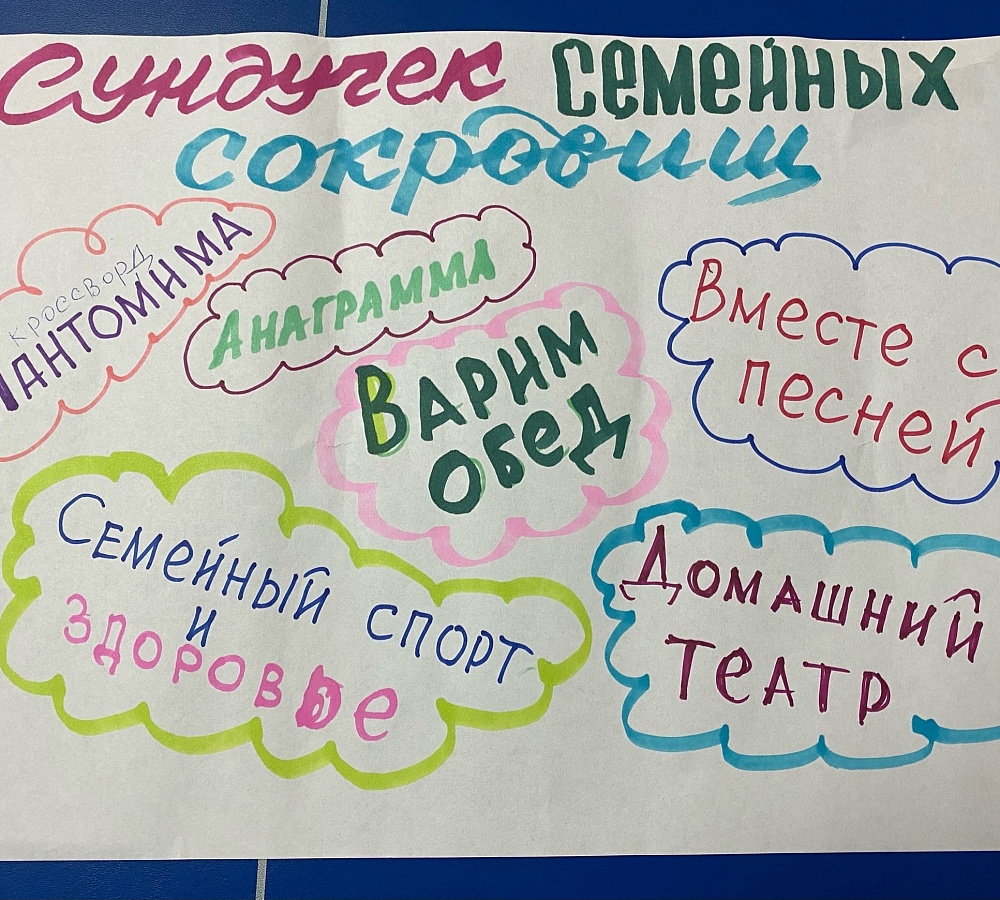 Сундучек семейных
сокровищ
кроссворд
Пантомима
Анаграмма
Варим
обед
Вместе с
песней
Семейный спорт
и
здоровье
Домашний
театр